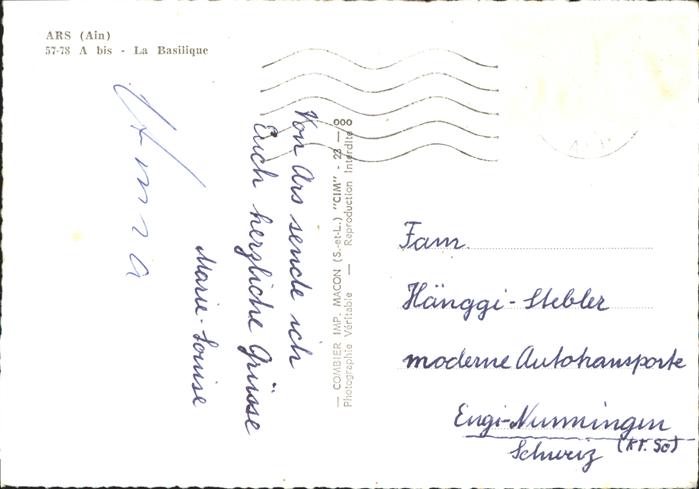 ARS (Ain)
57-78 A bis - La Basilique
Von Ars sende ich
Euch herzliche Grüsse
Marie-Louise
Anna
— COMBIER IMP. MACON (S.-et-L.) "CIM" - 23 — 000
Photographie Véritable — Reproduction Interdite
Fam.
Hänggi-Stebler
moderne Autotransporte
Engi-Nunningen
(Kt. So)
Schweiz